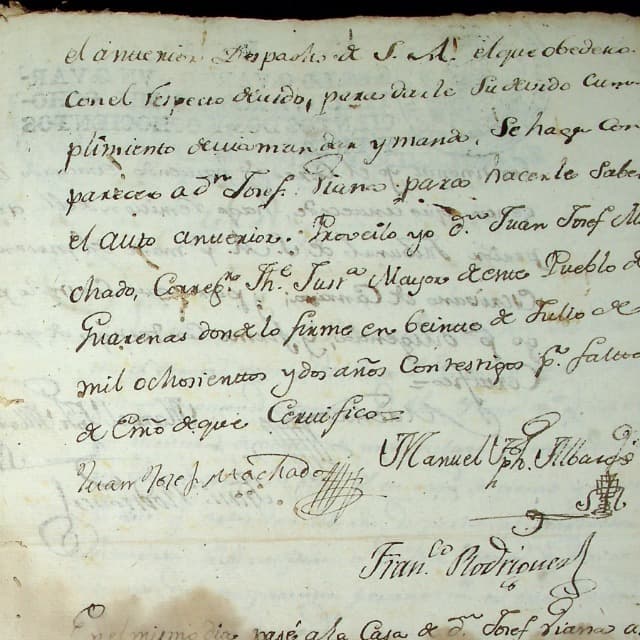 el anterior Despacho de S. M. el que obedecio
con el respecto devido, para darle su devido cum
plimiento devia mandar y mando, Se haga com
parecer a Dn Josef Viana para hacerle saber
el auto anterior. Proveilo yo Dn Juan Josef Ma
chado, Corregr The Justa Mayor de este Pueblo de
Guarenas donde lo firme en beinte de Julio de
mil ochosienttos y dos años con testigos pr falta
de Esno de que Certifico=
Juan Josef Machado
Manuel Jph. Albares
Franco Rodriguez
En el mismo dia pasé a la Casa de Dn Josef Viana